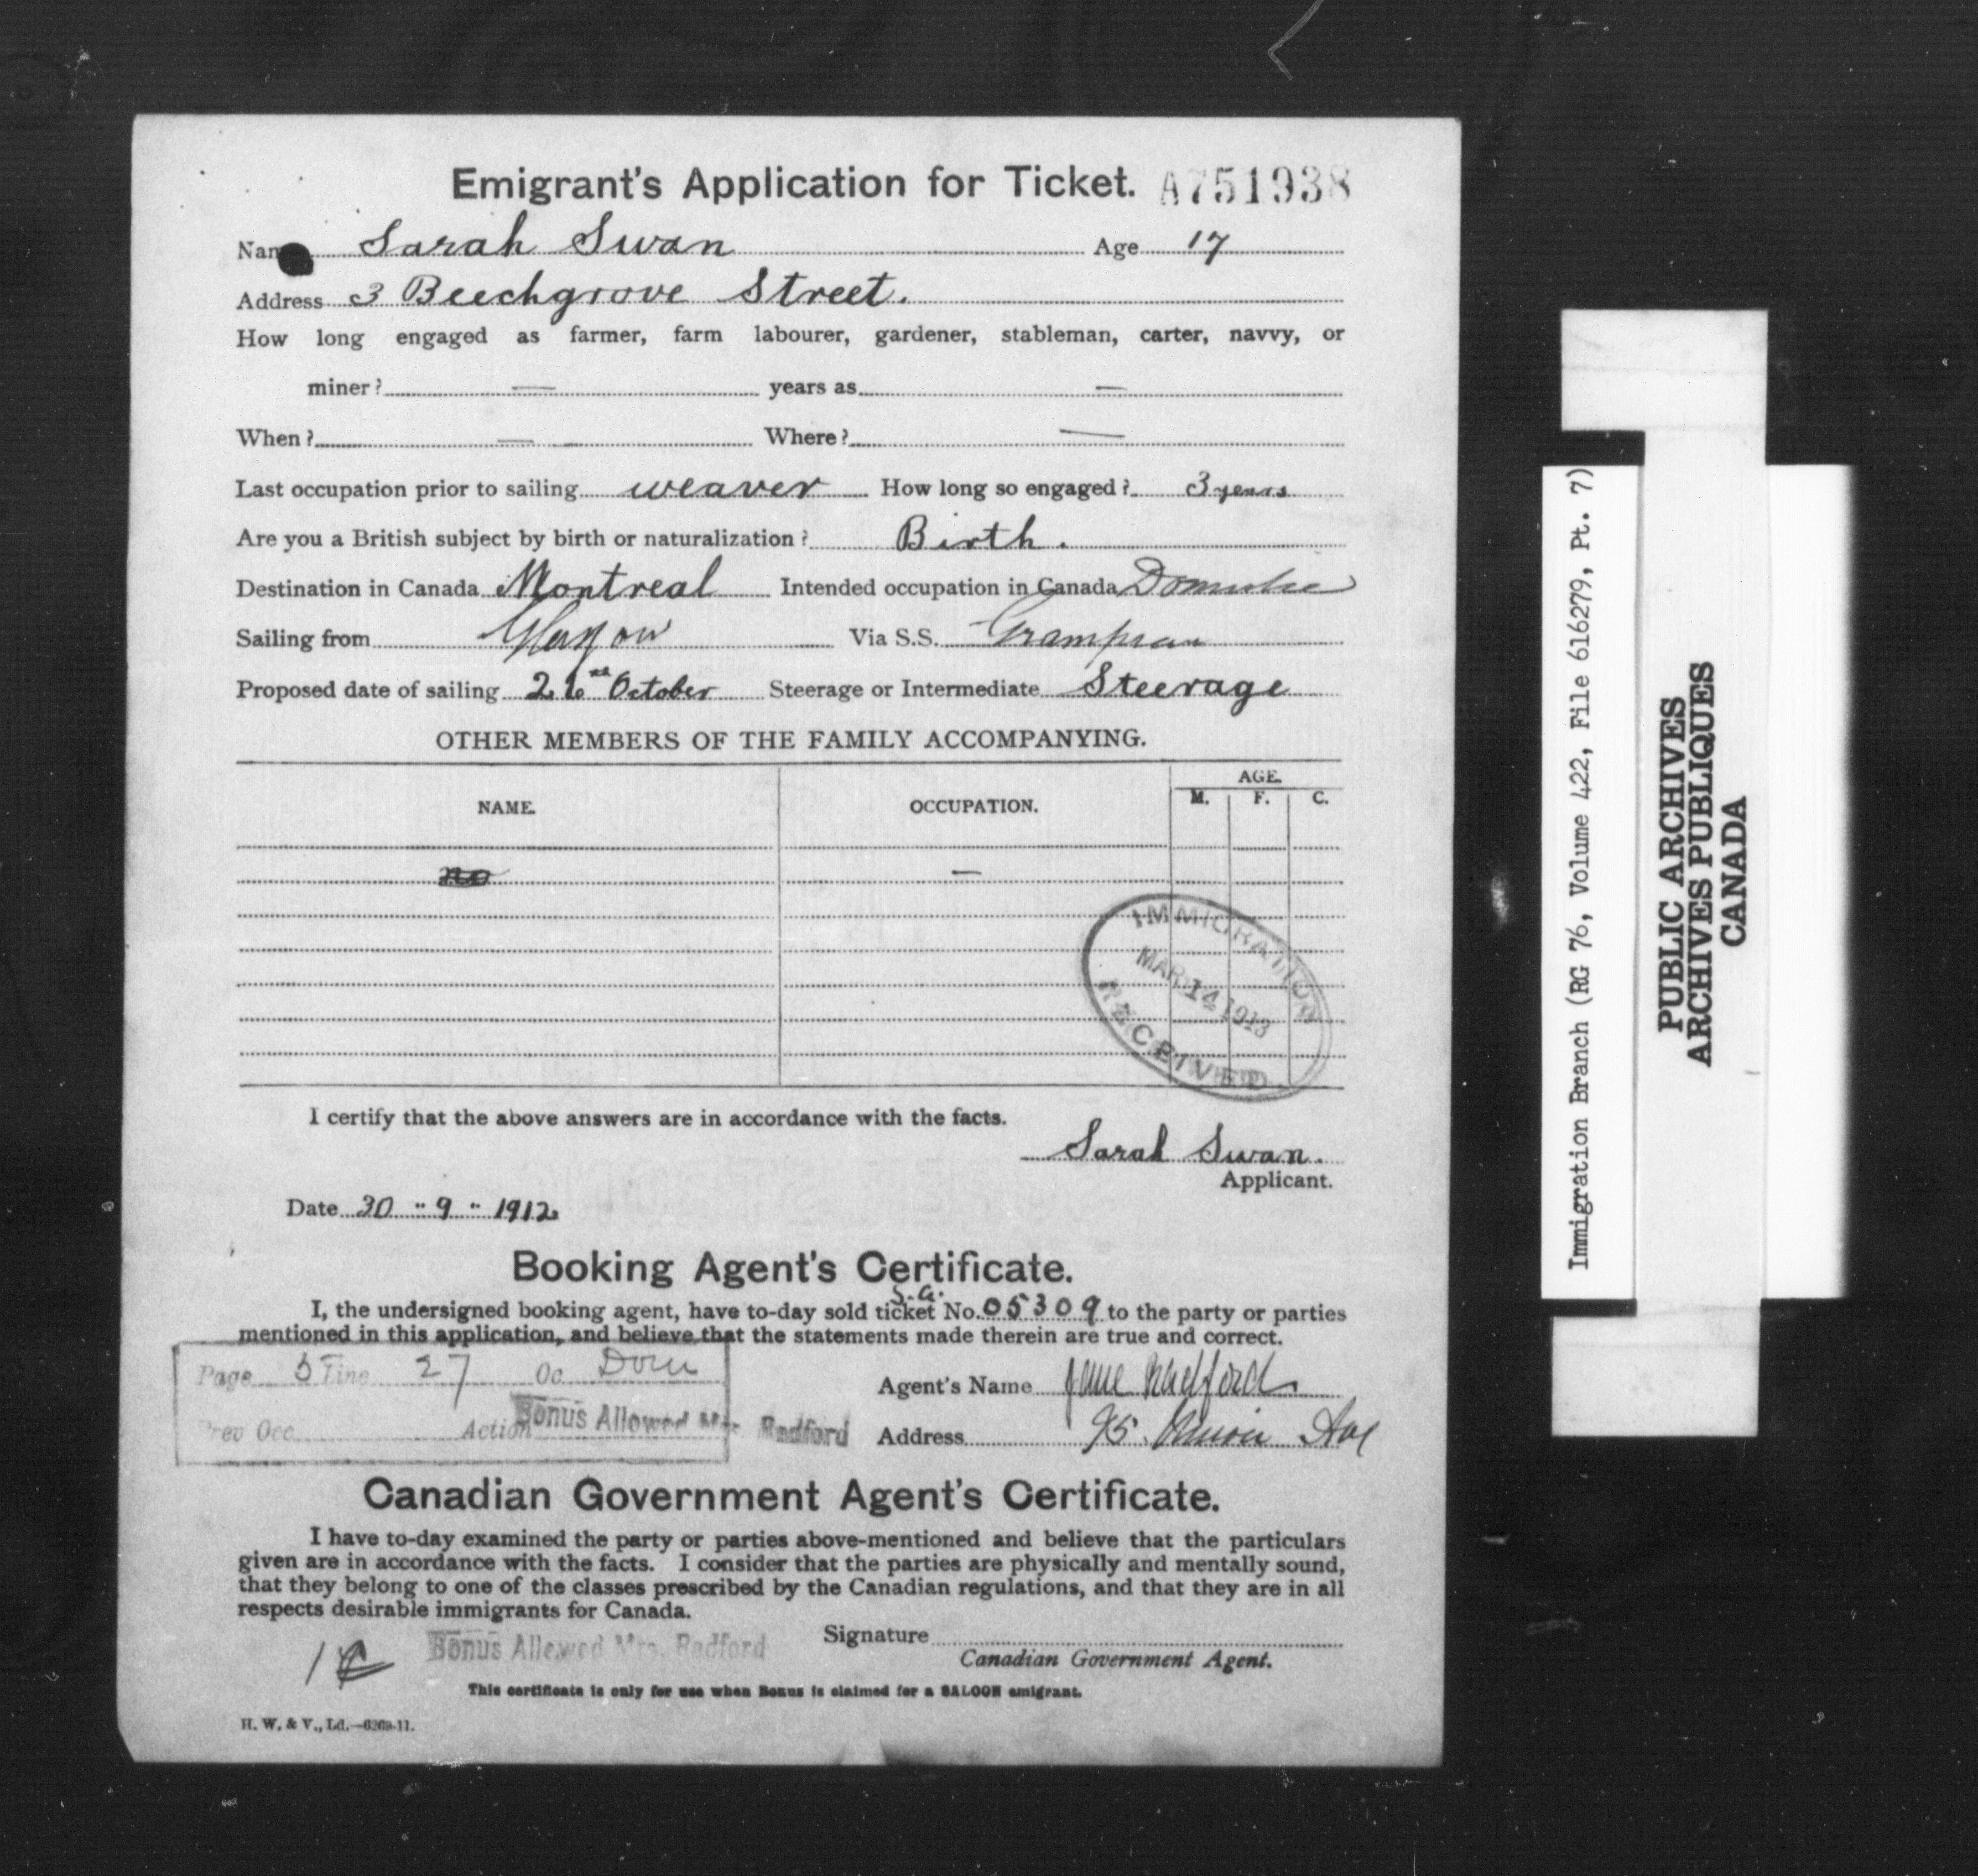 Emigrant's Application for Ticket. A751938
Nam Sarah Swan Age 17
Address 3 Beechgrove Street.
How long engaged as farmer, farm labourer, gardener, stableman, carter, navvy, or
miner? — years as —
When? — Where? —
Last occupation prior to sailing weaver How long so engaged? 3 years
Are you a British subject by birth or naturalization? Birth.
Destination in Canada Montreal Intended occupation in Canada Domestic
Sailing from Glasgow Via S.S. Grampian
Proposed date of sailing 26 October Steerage or Intermediate Steerage
OTHER MEMBERS OF THE FAMILY ACCOMPANYING.
NAME. OCCUPATION. AGE.
M. F. C.
no —
IMMIGRATION
MAR 14 1913
RECEIVED
I certify that the above answers are in accordance with the facts.
Sarah Swan.
Applicant.
Date 30 " 9 " 1912
Booking Agent's Certificate.
S.a.
I, the undersigned booking agent, have to-day sold ticket No. 05309 to the party or parties
mentioned in this application, and believe that the statements made therein are true and correct.
Page 5 Line 27 Oc Dom
Prev Occ Action Bonus Allowed Mrs. Redford
Agent's Name Jane Redford
Address 95 Union Ave
Canadian Government Agent's Certificate.
I have to-day examined the party or parties above-mentioned and believe that the particulars
given are in accordance with the facts. I consider that the parties are physically and mentally sound,
that they belong to one of the classes prescribed by the Canadian regulations, and that they are in all
respects desirable immigrants for Canada.
Bonus Allowed Mrs. Redford
Signature
Canadian Government Agent.
This certificate is only for use when Bonus is claimed for a SALOON emigrant.
H. W. & V., Ld.—6269-11.
Immigration Branch (RG 76, Volume 422, File 616279, Pt. 7)
PUBLIC ARCHIVES
ARCHIVES PUBLIQUES
CANADA